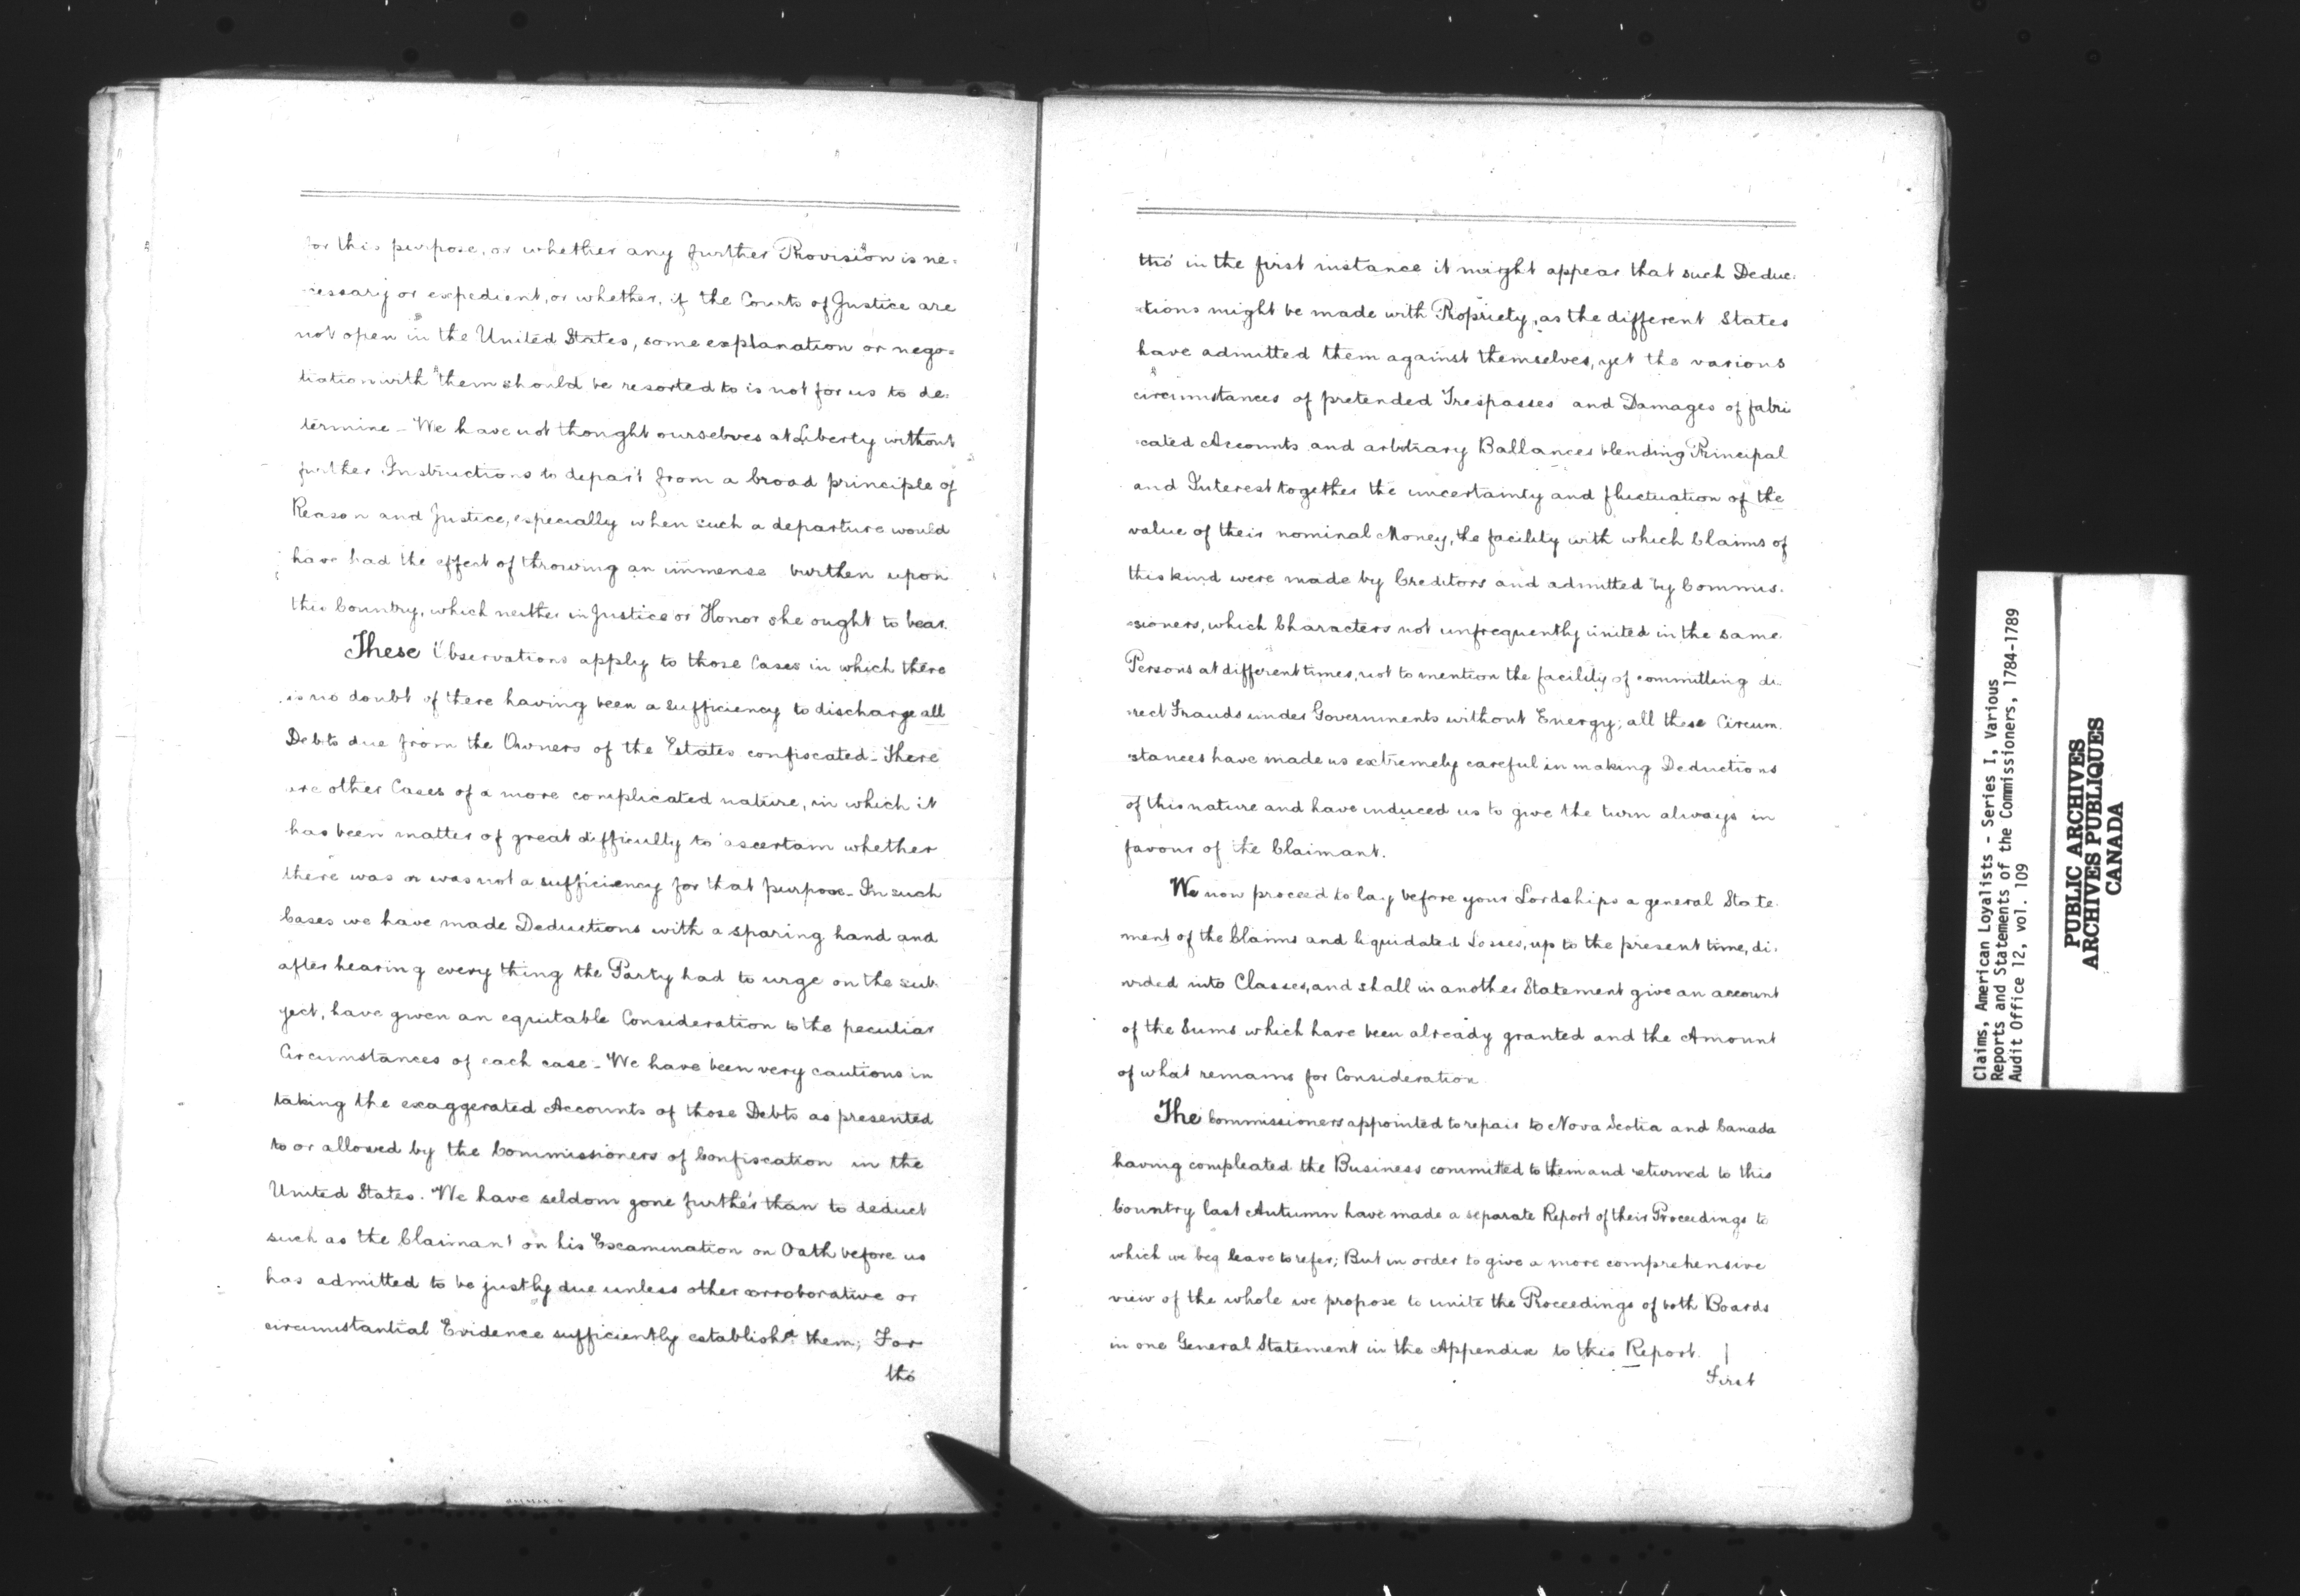 for this purpose, or whether any further Provision is ne-
cessary or expedient, or whether, if the Courts of Justice are
not open in the United States, some explanation or nego-
tiation with them should be resorted to is not for us to de-
termine - We have not thought ourselves at Liberty without
further Instructions to depart from a broad principle of
Reason and Justice, especially when such a departure would
have had the effect of throwing an immense burthen upon
this Country, which neither in Justice or Honor she ought to bear.
These Observations apply to those Cases in which there
is no doubt of there having been a sufficiency to discharge all
Debts due from the Owners of the Estates confiscated - There
are other Cases of a more complicated nature, in which it
has been matter of great difficulty to ascertain whether
there was or was not a sufficiency for that purpose - In such
Cases we have made Deductions with a sparing hand and
after hearing every thing the Party had to urge on the sub-
ject, have given an equitable Consideration to the peculiar
Circumstances of each case - We have been very cautious in
taking the exaggerated Accounts of those Debts as presented
to or allowed by the Commissioners of Confiscation in the
United States. We have seldom gone further than to deduct
such as the Claimant on his Examination on Oath before us
has admitted to be justly due unless other corroborative or
circumstantial Evidence sufficiently establish'd them; For
tho'
tho' in the first instance it might appear that such Deduc-
-tions might be made with Propriety, as the different States
have admitted them against themselves, yet the various
circumstances of pretended Trespasses and Damages of fabri
-cated Accounts and arbitrary Ballances blending Principal
and Interest together the uncertainty and fluctuation of the
value of their nominal Money, the facility with which Claims of
this kind were made by Creditors and admitted by Commis-
-sioners, which Characters not unfrequently united in the same
Persons at different times, not to mention the facility of committing di-
-rect Frauds under Governments without Energy; all these Circum-
-stances have made us extremely careful in making Deductions
of this nature and have induced us to give the turn always in
favour of the Claimant.
We now proceed to lay before your Lordships a general State-
ment of the Claims and liquidated Losses, up to the present time, di-
vided into Classes, and shall in another Statement give an account
of the Sums which have been already granted and the Amount
of what remains for Consideration
The Commissioners appointed to repair to Nova Scotia and Canada
having compleated the Business committed to them and returned to this
Country last Autumn have made a separate Report of their Proceedings to
which we beg leave to refer; But in order to give a more comprehensive
view of the whole we propose to unite the Proceedings of both Boards
in one General Statement in the Appendix to this Report.
First
Claims, American Loyalists - Series I, Various
Reports and Statements of the Commissioners, 1784-1789
Audit Office 12, vol. 109
PUBLIC ARCHIVES
ARCHIVES PUBLIQUES
CANADA